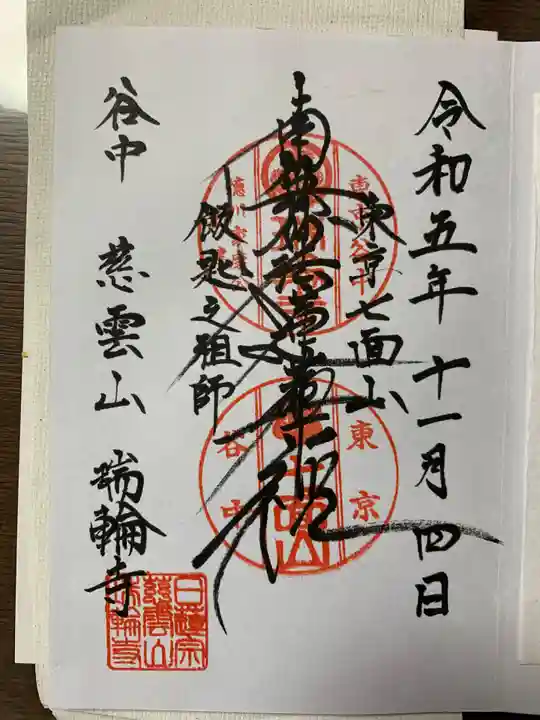 令和五年 十一月 四日
東京七面山
南無妙法蓮華経
飯匙之祖師
谷中 慈雲山 瑞輪寺
東京
谷中
日蓮宗
慈雲山
瑞輪寺